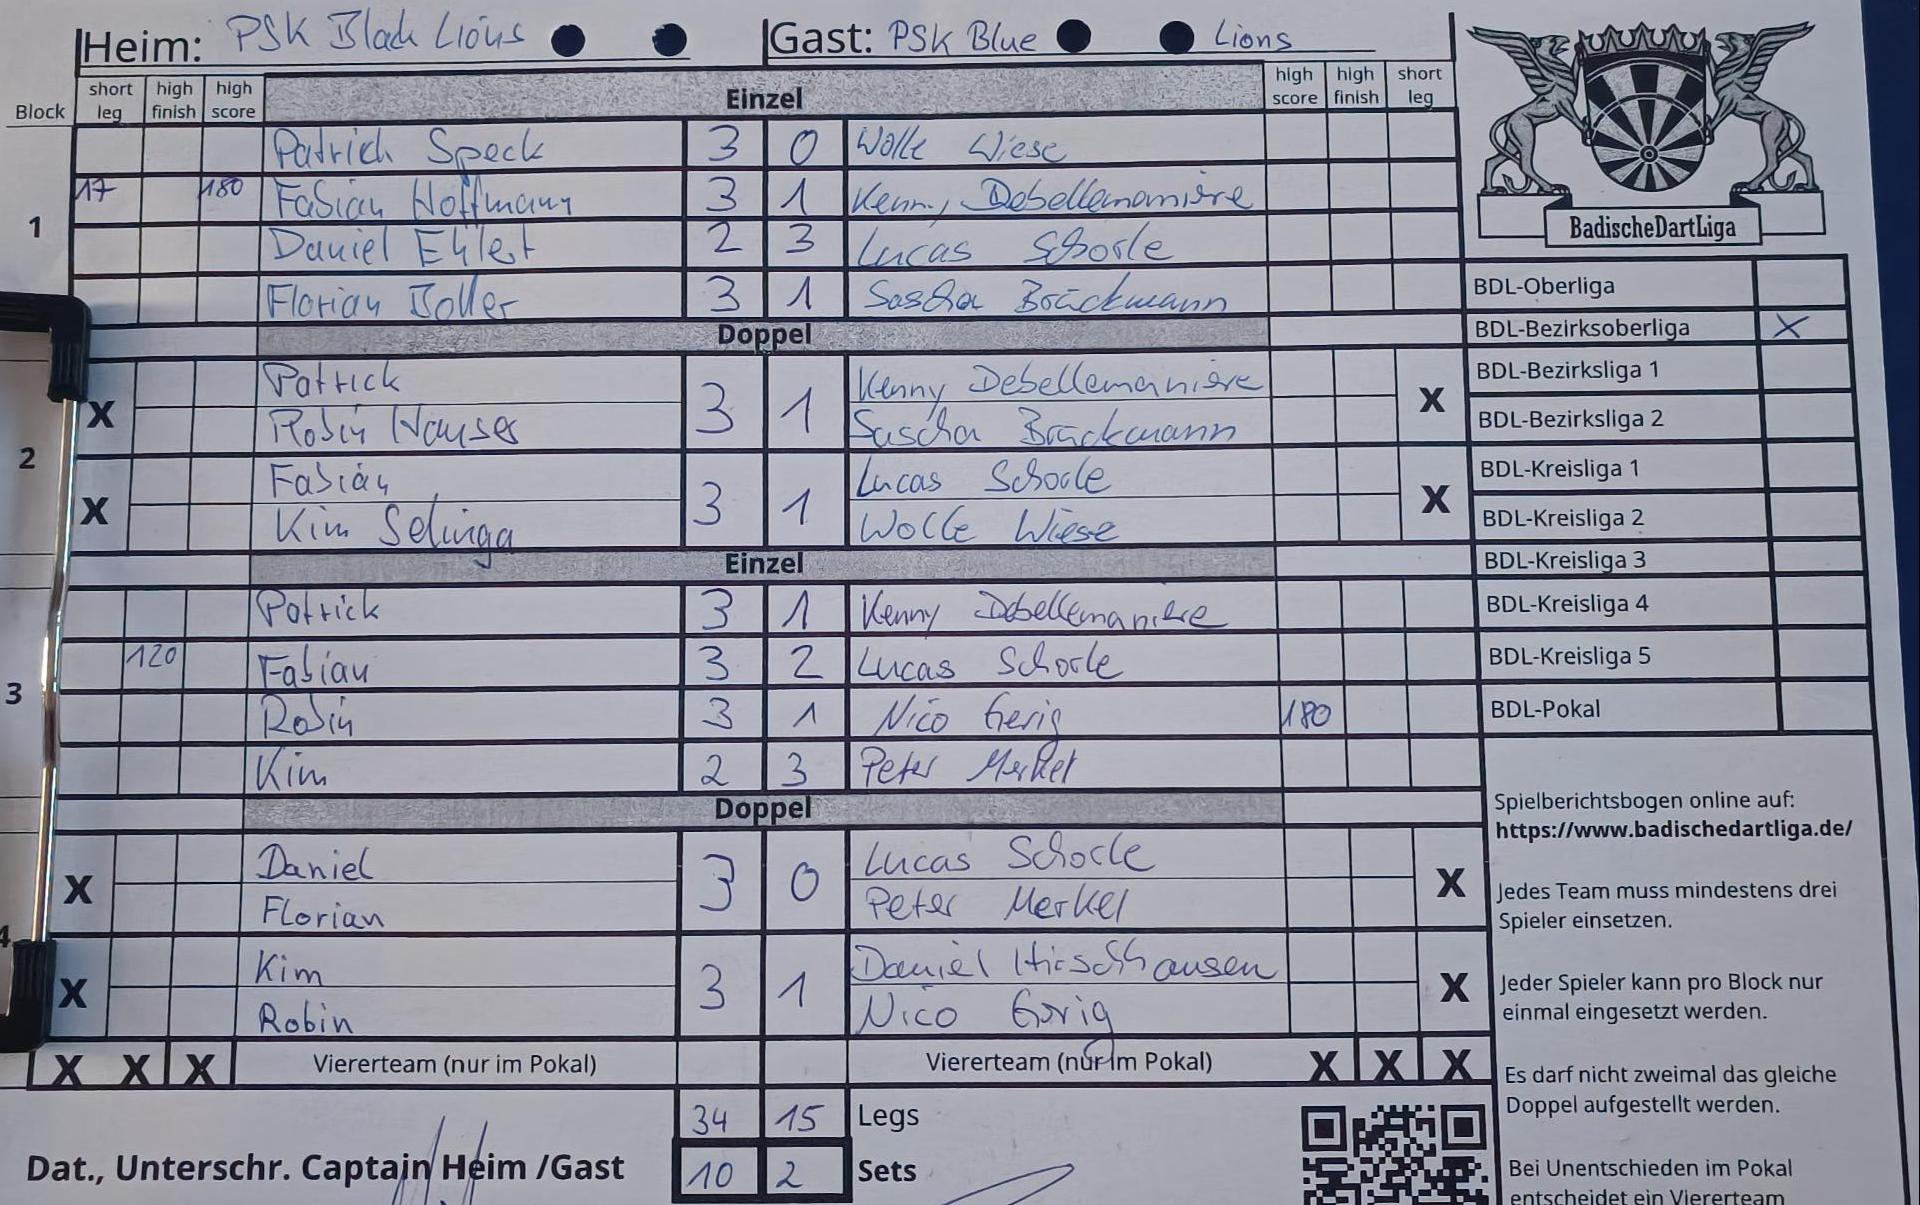 Heim: PSK Black Lions Gast: PSK Blue Lions
Block short leg high finish high score Einzel high score high finish short leg
Patrick Speck 3 0 Wolle Wiese
17 180 Fabian Hoffmann 3 1 Kenny Debellemanière
1
Daniel Ehlert 2 3 Lucas Schorle
Florian Boller 3 1 Sascha Brackmann
Doppel
Patrick 3 1 Kenny Debellemanière
X Robin Hauser Sascha Brackmann X
2
Fabian 3 1 Lucas Schorle
X Kim Selinga Wolle Wiese X
Einzel
Patrick 3 1 Kenny Debellemanière
120 Fabian 3 2 Lucas Schorle
3
Robin 3 1 Nico Gerig 180
Kim 2 3 Peter Merkel
Doppel
Daniel 3 0 Lucas Schorle
X Florian Peter Merkel X
4
Kim 3 1 Daniel Hirschhausen
X Robin Nico Gerig X
X X X Viererteam (nur im Pokal) Viererteam (nur im Pokal) X X X
34 15 Legs
Dat., Unterschr. Captain Heim /Gast 10 2 Sets
BadischeDartLiga
BDL-Oberliga
BDL-Bezirksoberliga X
BDL-Bezirksliga 1
BDL-Bezirksliga 2
BDL-Kreisliga 1
BDL-Kreisliga 2
BDL-Kreisliga 3
BDL-Kreisliga 4
BDL-Kreisliga 5
BDL-Pokal
Spielberichtsbogen online auf:
https://www.badischedartliga.de/
Jedes Team muss mindestens drei
Spieler einsetzen.
Jeder Spieler kann pro Block nur
einmal eingesetzt werden.
Es darf nicht zweimal das gleiche
Doppel aufgestellt werden.
Bei Unentschieden im Pokal
entscheidet ein Viererteam